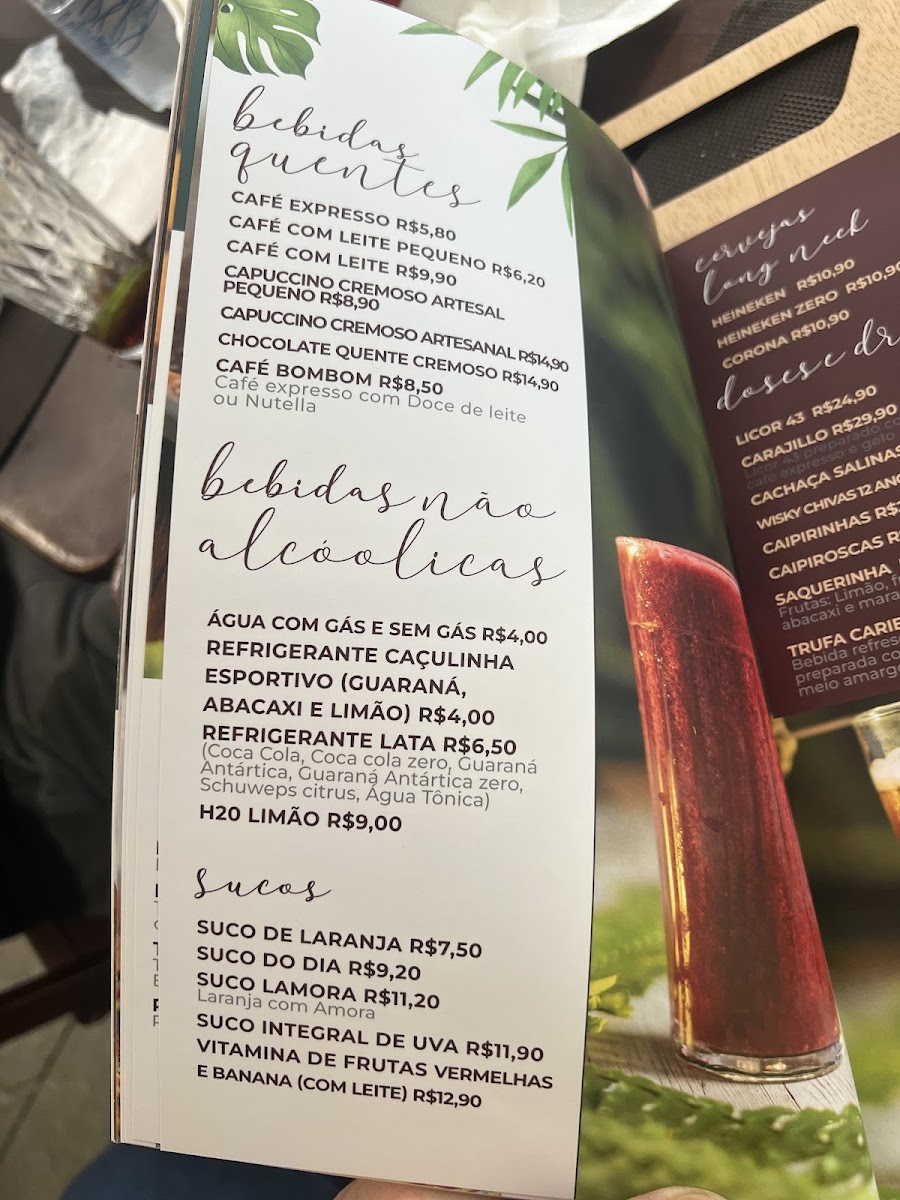 bebidas
quentes
CAFÉ EXPRESSO R$5,80
CAFÉ COM LEITE PEQUENO R$6,20
CAFÉ COM LEITE R$9,90
CAPUCCINO CREMOSO ARTESAL
PEQUENO R$8,90
CAPUCCINO CREMOSO ARTESANAL R$14,90
CHOCOLATE QUENTE CREMOSO R$14,90
CAFÉ BOMBOM R$8,50
Café expresso com Doce de leite
ou Nutella
bebidas não
alcóolicas
ÁGUA COM GÁS E SEM GÁS R$4,00
REFRIGERANTE CAÇULINHA
ESPORTIVO (GUARANÁ,
ABACAXI E LIMÃO) R$4,00
REFRIGERANTE LATA R$6,50
(Coca Cola, Coca cola zero, Guaraná
Antártica, Guaraná Antártica zero,
Schuweps citrus, Água Tônica)
H20 LIMÃO R$9,00
sucos
SUCO DE LARANJA R$7,50
SUCO DO DIA R$9,20
SUCO LAMORA R$11,20
Laranja com Amora
SUCO INTEGRAL DE UVA R$11,90
VITAMINA DE FRUTAS VERMELHAS
E BANANA (COM LEITE) R$12,90
cervejas
long neck
HEINEKEN R$10,90
HEINEKEN ZERO R$10,90
CORONA R$10,90
doses e dr
LICOR 43 R$24,90
CARAJILLO R$29,90
Licor 43 preparado co
café expresso e gelo
CACHAÇA SALINAS
WISKY CHIVAS 12 ANO
CAIPIRINHAS R$
CAIPIROSCAS R
SAQUERINHA
Frutas: Limão, f
abacaxi e mara
TRUFA CARIB
Bebida refres
preparada co
meio amargo